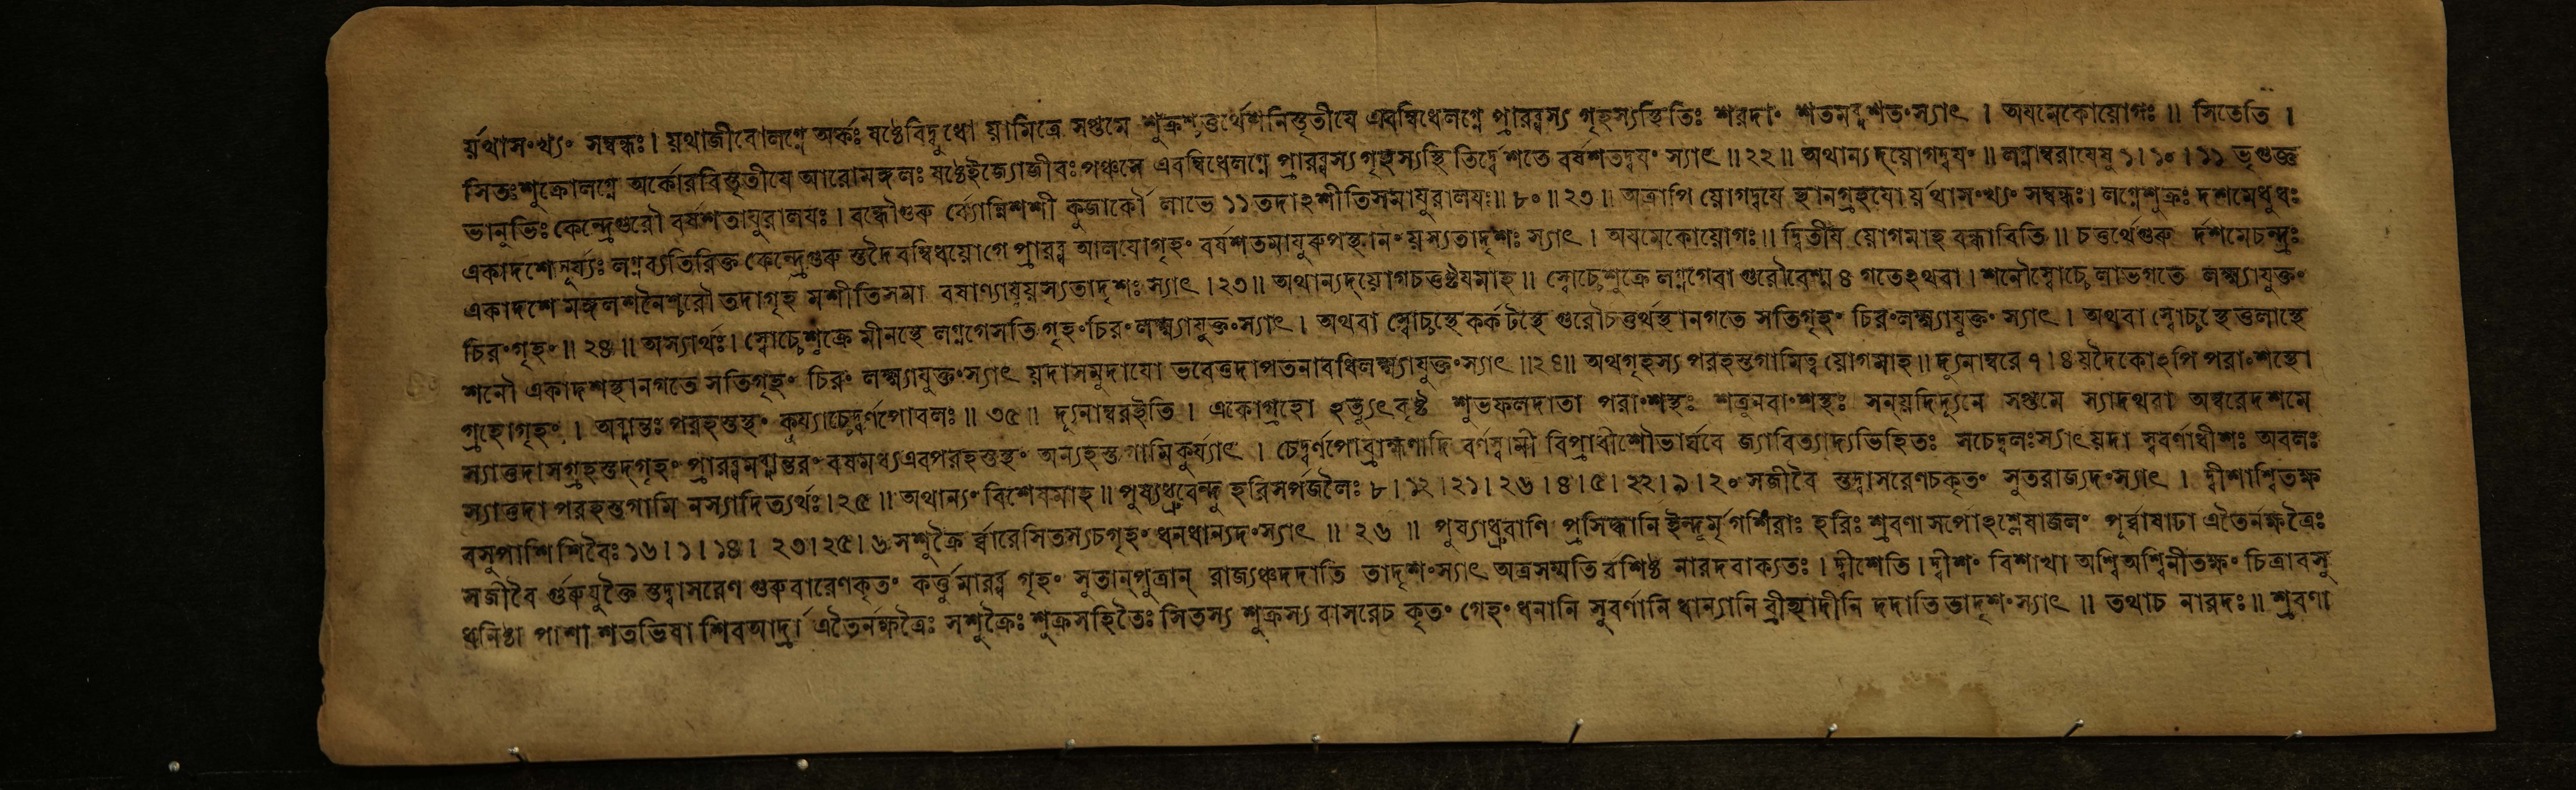 র্য়থাস°খ্য° সম্বন্ধঃ। য়থাজীবোলগ্নে অর্কঃ ষষ্ঠেবিদ্বুধো য়ামিত্রে সপ্তমে শুক্রশ্চতুর্থেশনিস্তৃতীযে এবম্বিধেলগ্নে প্রারব্ধস্য গৃহস্যস্থিতিঃ শরদা° শতমব্দশত°স্যাৎ । অযমেকোয়োগঃ ॥ সিতেতি ।
সিতঃশুক্রোলগ্নে অর্কোরবিস্তৃতীযে আরোমঙ্গলঃ ষষ্ঠেইজ্যোজীবঃ পঞ্চমে এবম্বিধেলগ্নে প্রারব্ধস্য গৃহস্যস্থি তির্দ্বেশতে বর্ষশতদ্বয°স্যাৎ ॥ ২২ ॥ অথান্যদ্য়োগদ্বয° ॥ লগ্নাম্বরাযেষু ১।১০।১১ ভৃগুজ্ঞ
ভানুভিঃ কেন্দ্রেগুরৌ বর্ষশতাযুরালযঃ । বন্ধৌগুরু র্ব্যোম্নিশশী কুজার্কৌ লাভে ১১ তদাঽশীতিসমাযুরালযঃ॥ ৮০ ॥ ২৩ ॥ অত্রাপি য়োগদ্বযে স্থানগ্রহযো র্য়থাস°খ্য° সম্বন্ধঃ। লগ্নেশুক্রঃ দশমেবুধঃ
একাদশেসূর্য্যঃ লগ্নব্যতিরিক্ত কেন্দ্রেগুরু স্তদৈবম্বিধয়োগে প্রারব্ধ আলযোগৃহ° বর্ষশতমাযুরুপস্থান° য়স্যতাদৃশঃ স্যাৎ । অযমেকোয়োগঃ ॥ দ্বিতীয য়োগমাহ বন্ধাবিতি ॥ চতুর্থেগুরু র্দশমেচন্দ্রঃ
একাদশে মঙ্গলশনৈশ্চরৌ তদাগৃহ মশীতিসমা বর্ষাণ্যাযুর্য়স্যতাদৃশঃ স্যাৎ ।২৩॥ অথান্যদ্য়োগচতুষ্টযমাহ ॥ স্বোচ্চেশুক্রে লগ্নগেবা গুরৌবেশ্ম ৪ গতেঽথবা । শনৌস্বোচ্চে লাভগতে লক্ষ্ম্যাযুক্ত°
চির°গৃহ°॥ ২৪ ॥ অস্যার্থঃ। স্বোচ্চেশুক্রে মীনস্থে লগ্নগেসতি গৃহ°চির°লক্ষ্ম্যাযুক্ত°স্যাৎ । অথবা স্বোচ্চস্থে কর্কটস্থে গুরৌচতুর্থস্থানগতে সতিগৃহ° চির°লক্ষ্ম্যাযুক্ত° স্যাৎ । অথবা স্বোচ্চস্থে তুলাস্থে
শনৌ একাদশস্থানগতে সতিগৃহ° চির° লক্ষ্ম্যাযুক্ত°স্যাৎ য়দাসমুদাযো ভবেত্তদাপতনাবধিলক্ষ্ম্যাযুক্ত°স্যাৎ ॥২৪॥ অথগৃহস্য পরহস্তগামিত্ব য়োগমাহ॥ দ্যুনাম্বরে ৭।৪ য়দৈকোঽপি পরা°শস্থো
গ্রহোগৃহ°। অব্দান্তঃ পরহস্তস্থ° কুর্য্যাচ্চেদ্বর্ণপোবলঃ ॥ ৩৫ ॥ দ্যূনাম্বরইতি । একোগ্রহো শুভফলদাতা পরা°শস্থঃ শত্রুনবা°শস্থঃ সন্য়দিদ্যূনে সপ্তমে স্যাদথবা অম্বরেদশমে
স্যাত্তদাসগ্রহস্তদ্গৃহ° প্রারব্ধমব্দান্তর° বর্ষমধ্যএবপরহস্তস্থ° অন্যহস্তগামিকুর্য্যাৎ । চেদ্বর্ণপোব্রাহ্মণাদি বর্ণস্বামী বিপ্রাধীশৌভার্ঘবে জ্যাবিত্যাদ্যভিহিতঃ সচেদ্বলঃস্যাৎ য়দা স্ববর্ণাধীশঃ অবলঃ
স্যাত্তদা পরহস্তগামি নস্যাদিত্যর্থঃ।২৫॥ অথান্য° বিশেষমাহ ॥ পুষ্যধ্রুবেন্দু হরিসর্পজলৈঃ ৮।১২।২১।২৬।৪।৫।২২।৯।২০ সজীবৈ স্তদ্বাসরেণচকৃত° সুতরাজ্যদ°স্যাৎ । দ্বীশাশ্বিতক্ষ
বসুপাশিশিবৈঃ ১৬।১।১৪। ২৩।২৫।৬ সশুক্রৈ র্ব্বারেসিতস্যচগৃহ° ধনধান্যদ°স্যাৎ ॥ ২৬ ॥ পুষ্যাধ্রুবাণি প্রসিদ্ধানি ইন্দুর্মৃগশিরাঃ হরিঃ শ্রবণা সর্পোঽশ্লেষাজল° পূর্ব্বাষাঢা এতৈর্নক্ষত্রৈঃ
সজীবৈ র্গুরুযুক্তৈ স্তদ্বাসরেণ গুরুবারেণকৃত° কর্ত্তুমারব্ধ গৃহ° সুতান্পুত্রান্ রাজ্যঞ্চদদাতি তাদৃশ°স্যাৎ অত্রসম্মতি র্বশিষ্ঠ নারদবাক্যতঃ । দ্বীশেতি । দ্বীশ° বিশাখা অশ্বিঅশ্বিনীতক্ষ° চিত্রাবসু
ধনিষ্ঠা পাশা শতভিষা শিবআর্দ্রা এতৈর্নক্ষত্রৈঃ সশুক্রৈঃ শুক্রসহিতৈঃ সিতস্য শুক্রস্য বাসরেচ কৃত° গেহ° ধনানি সুবর্ণানি ধান্যানি ব্রীহ্যাদীনি দদাতি তাদৃশ°স্যাৎ ॥ তথাচ নারদঃ ॥ শ্রবণা